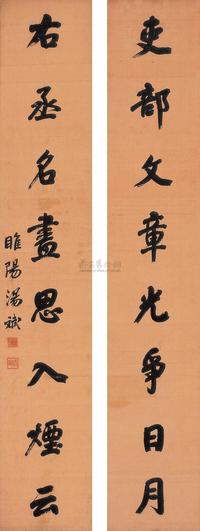 吏部文章光爭日月
右丞名畫思入煙云
睢陽湯斌